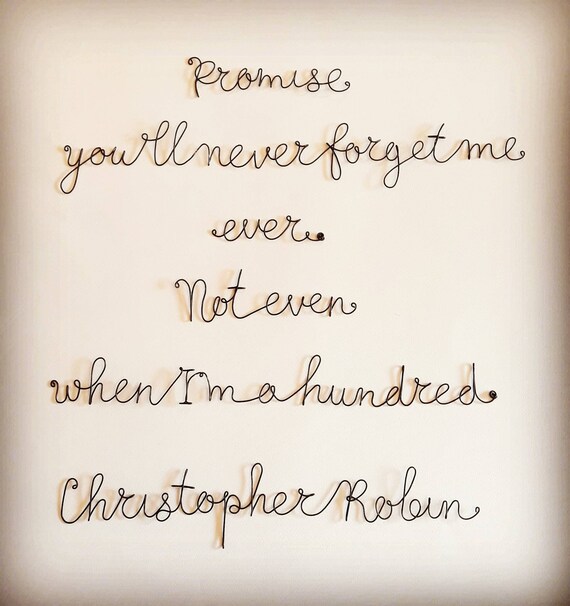 Promise
you'll never forget me
ever.
Not even
when I'm a hundred.
Christopher Robin